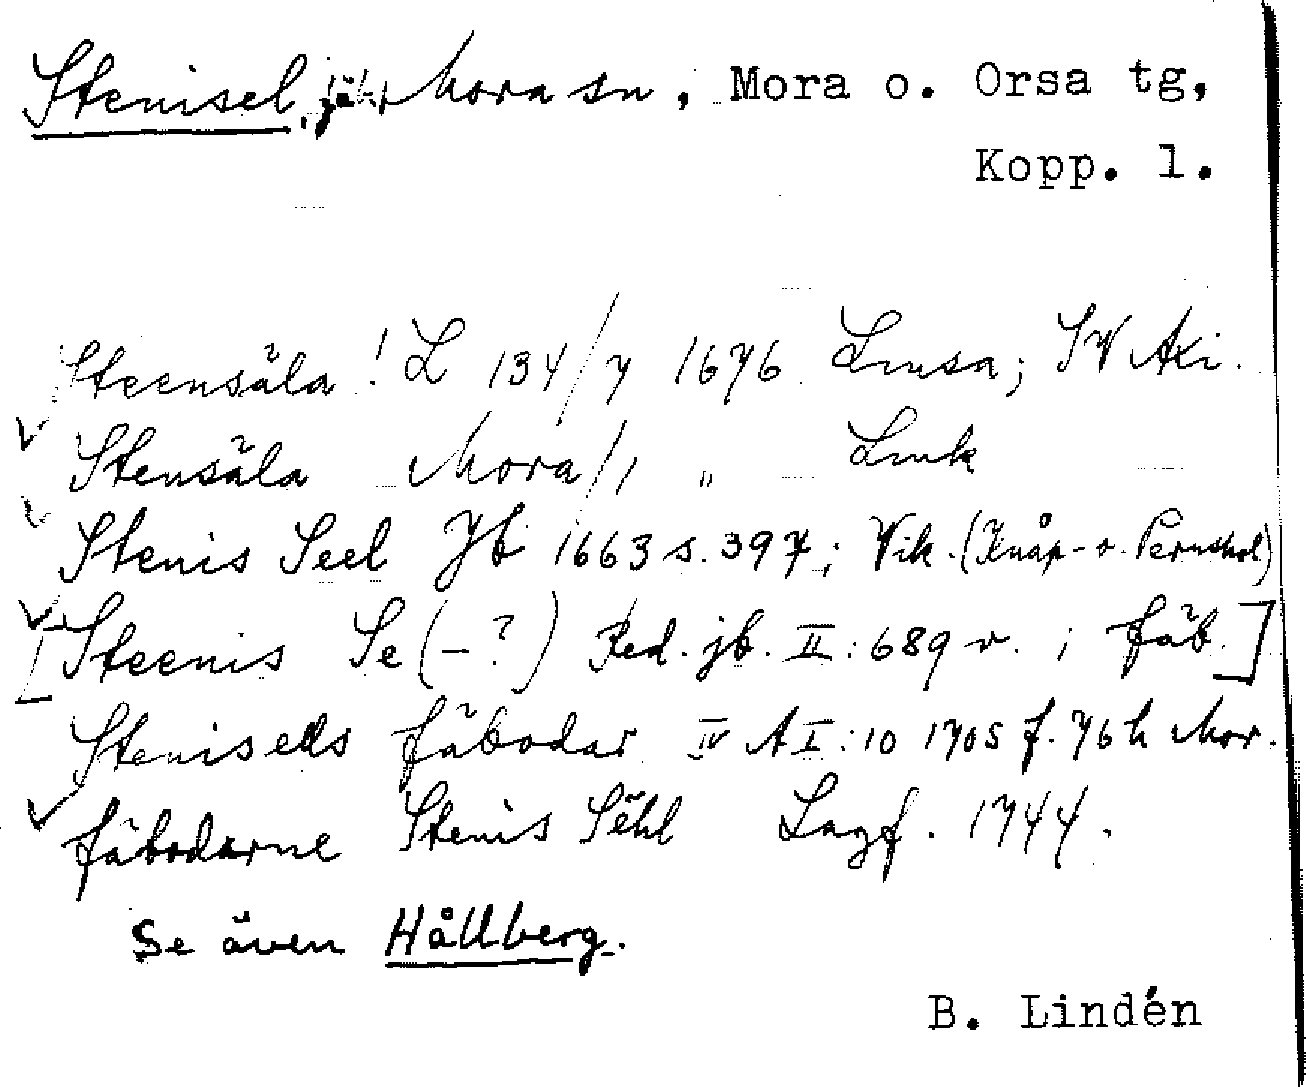 Stenisel, fäbr Mora sn, Mora o. Orsa tg,
Kopp. l.
Steensäla! L 134/7 1676 Lmsa; SV Axi.
Stensäla Mora/1 " Lmk
Stenis Seel Jb 1663 s. 397; Vik. (Knåp- o. Pernshol)
[Steenis Se(-?) Red. jb. II:689 v. ; fäb.]
Stenisels fäbodar IV A I:10 1705 f. 76 h Mor.
fäbodarne Stenis Sëhl Lagf. 1744.
Se även Hållberg.
B. Lindén